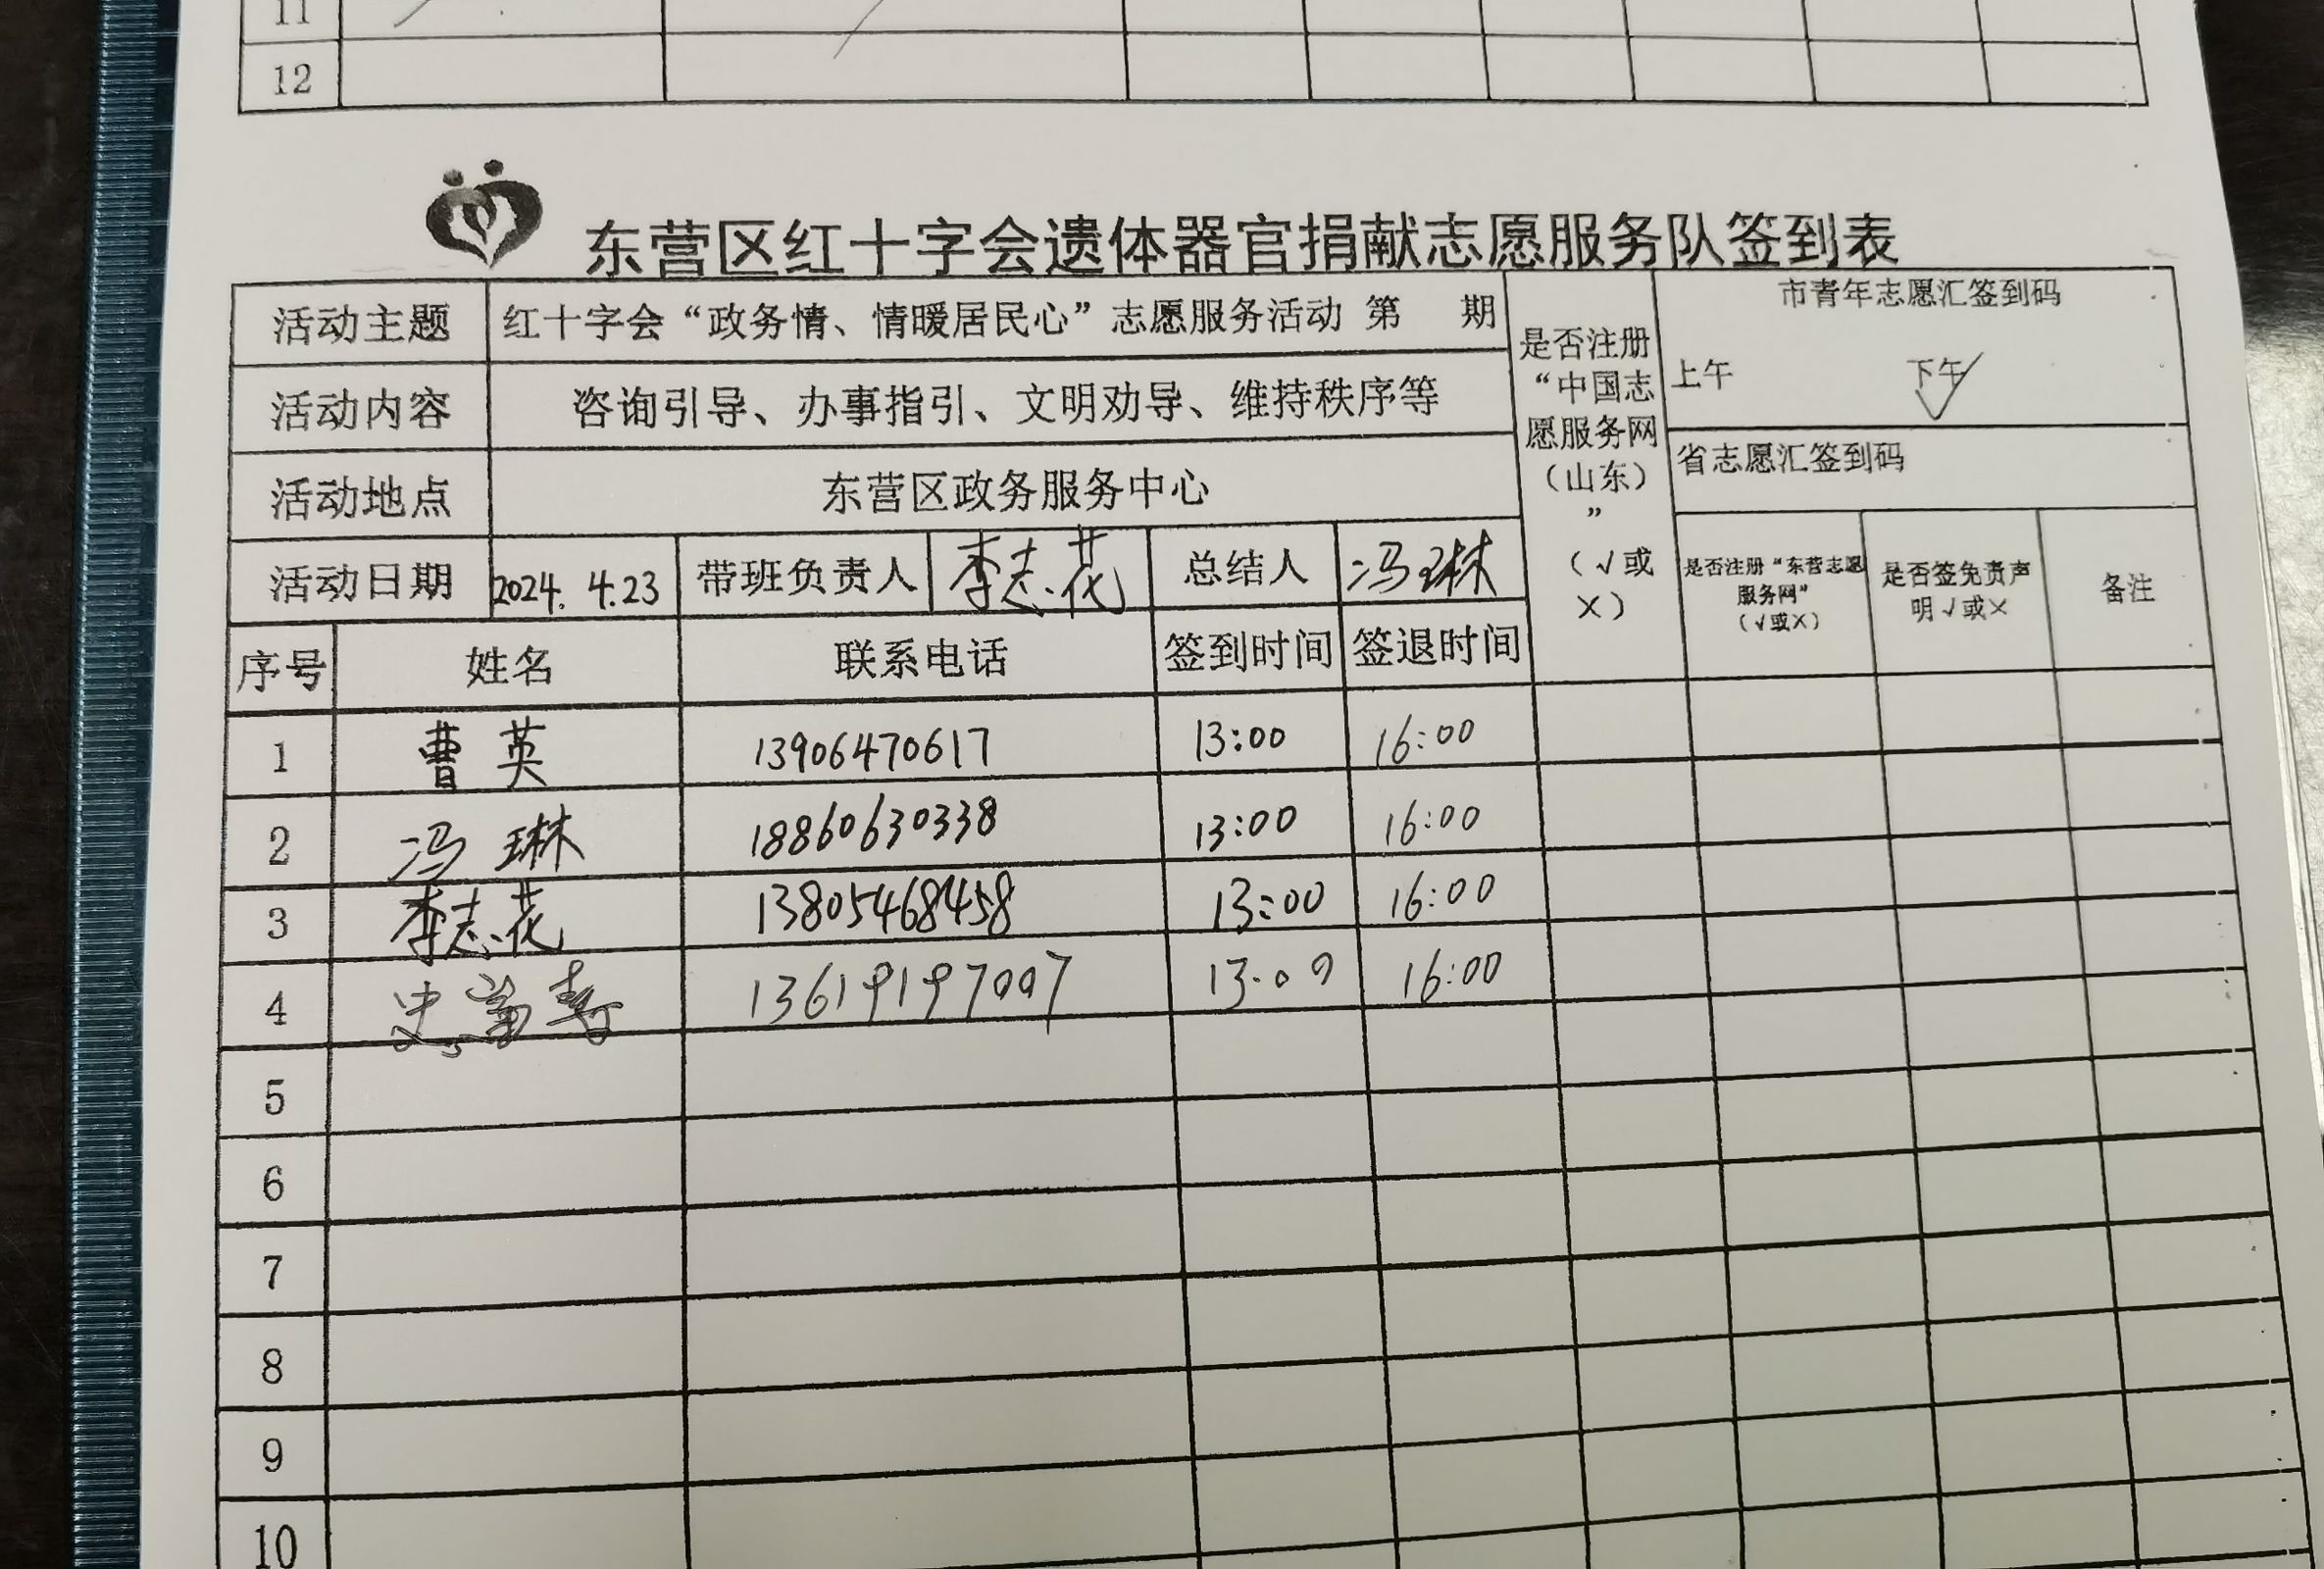 11
12
东营区红十字会遗体器官捐献志愿服务队签到表
活动主题 红十字会“政务情、情暖居民心”志愿服务活动 第 期 是否注册“中国志愿服务网（山东）”（√或×） 市青年志愿汇签到码
上午 下午 √
活动内容 咨询引导、办事指引、文明劝导、维持秩序等
省志愿汇签到码
活动地点 东营区政务服务中心
活动日期 2024.4.23 带班负责人 李志花 总结人 冯琳 是否注册“东营志愿服务网”（√或×） 是否签免责声明√或× 备注
序号 姓名 联系电话 签到时间 签退时间
1 曹英 13906470617 13:00 16:00
2 冯琳 18860630338 13:00 16:00
3 李志花 13805468458 13:00 16:00
4 13619197007 13:00 16:00
5
6
7
8
9
10